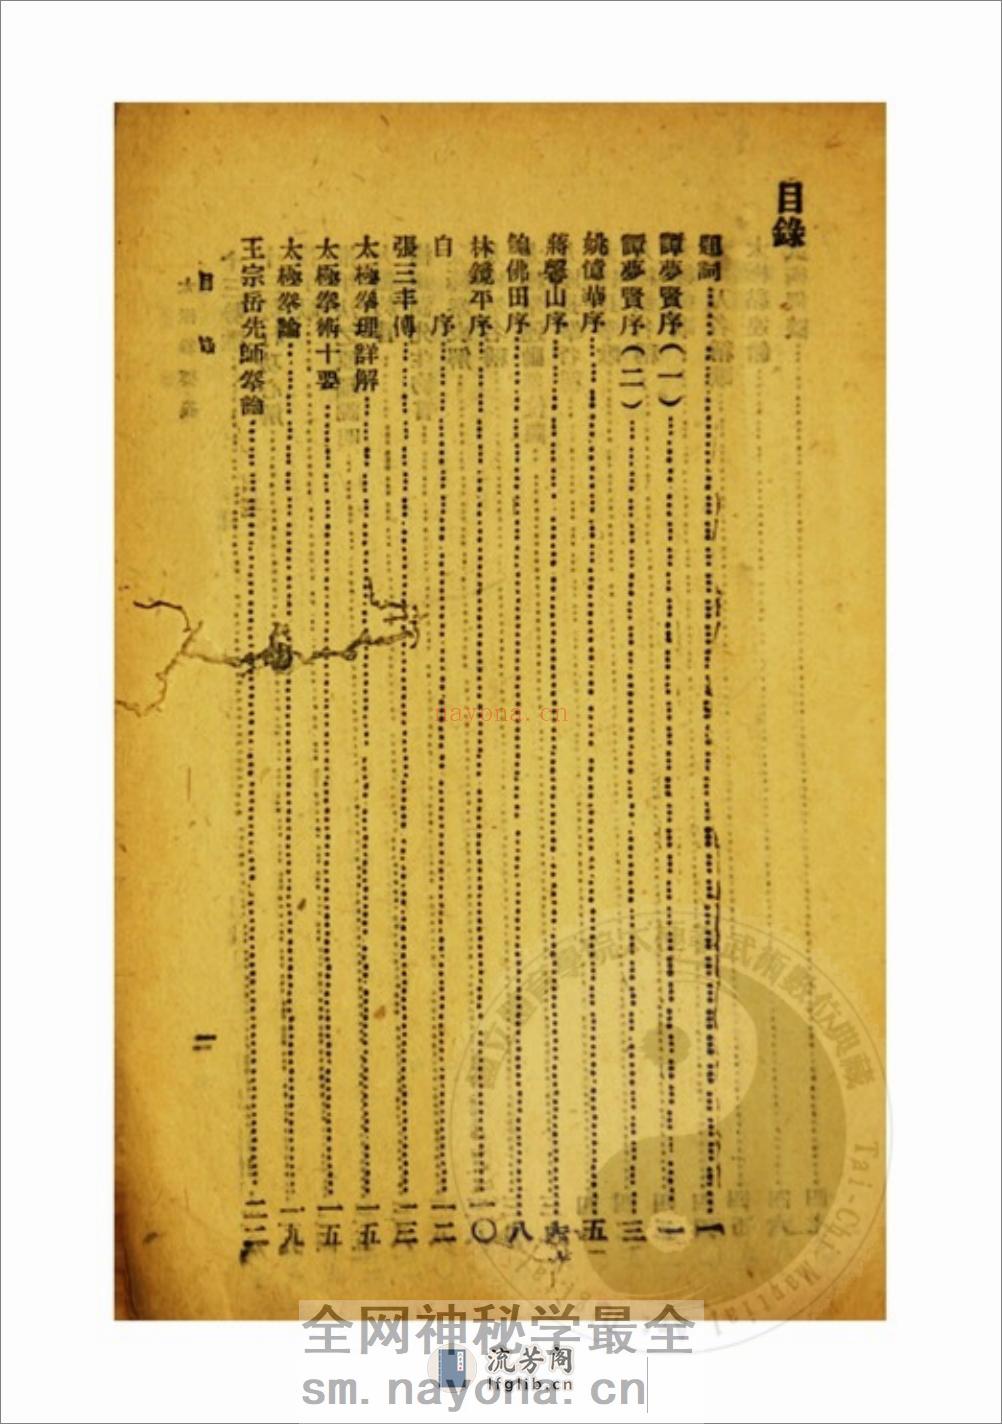 目錄
題詞……一
譚夢賢序(一)……一
譚夢賢序(二)……三
姚億華序……五
蔣馨山序……六
鮑佛田序……八
林鏡平序……一〇
自序……一二
張三丰傳……一三
太極拳理詳解……一五
太極拳術十要……一五
太極拳論……一九
王宗岳先師拳論……二二
目錄
一
nayona.cn
國立體育學院太極拳武術數位典藏
Tai-Chi Martial
全网神秘学最全
流芳阁
lfglib.cn
sm.nayona.cn